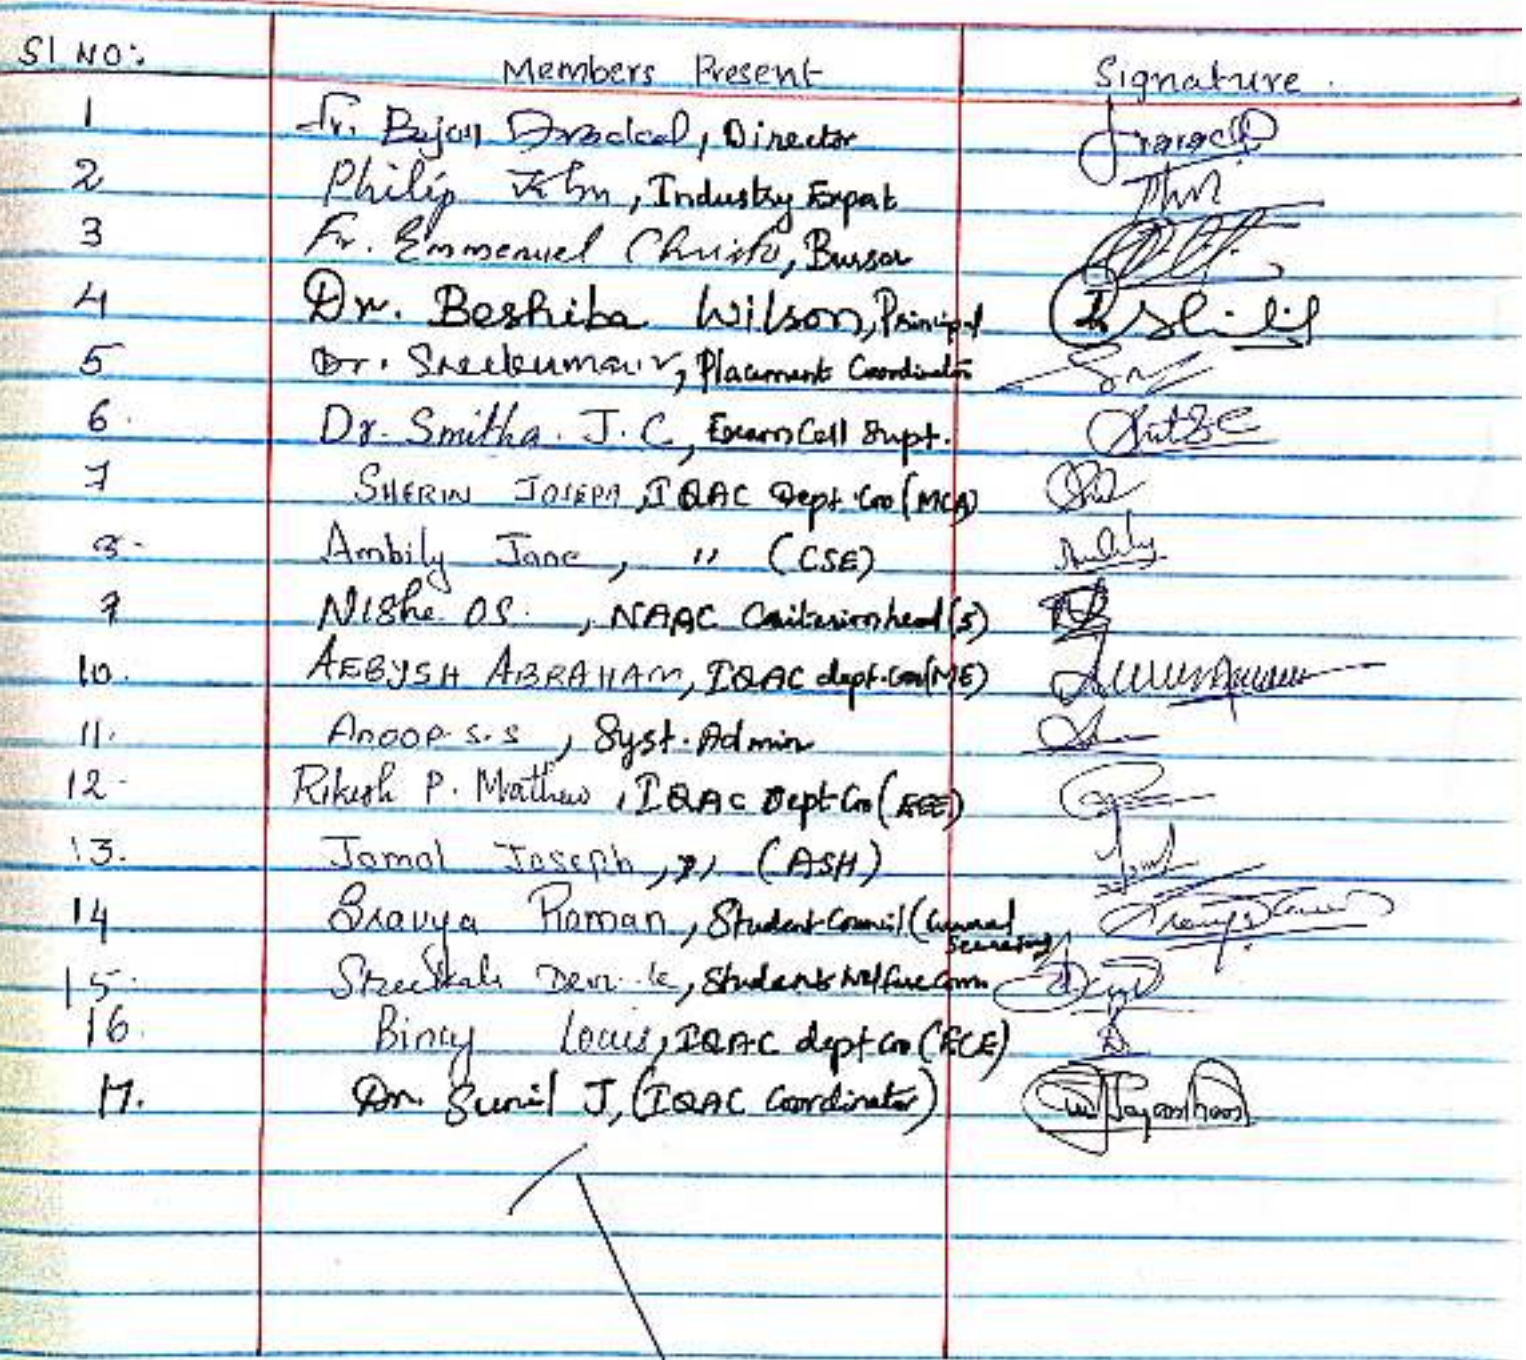 Sl NO: Members Present Signature.
1 Fr. , Director
2 Philip John, Industry Expert
3 Fr. Emmanuel Christo, Bursar
4 Dr. Beshiba Wilson, Principal
5 Dr. Sreekumar V, Placement Coordinator
6. Dr. Smitha. J. C, Exam Cell Supt.
7 SHERIN JOSEPH, IQAC Dept. Coo (MCA)
8. Ambily Jane, " (CSE)
9 Nisha O S. , NAAC Criterion head (5)
10. AEBYSH ABRAHAM, IQAC dept. Coo (ME)
11. Anoop. S. S , Syst. Admin
12. Rikesh P. Mathew, IQAC Dept Coo (EEE)
13. Jomol Joseph, " (ASH)
14 Sravya Raman, Student Council (General
Secretary)
15. Devi. K, Student Welfare Com.
16. Bincy Louis, IQAC dept Coo (ECE)
17. Dr. Sunil J, (IQAC Coordinator)